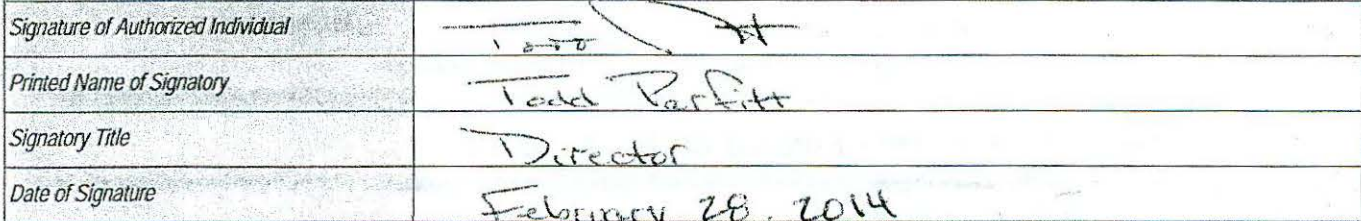 Signature of Authorized Individual
Printed Name of Signatory Todd Parfitt
Signatory Title Director
Date of Signature February 28, 2014